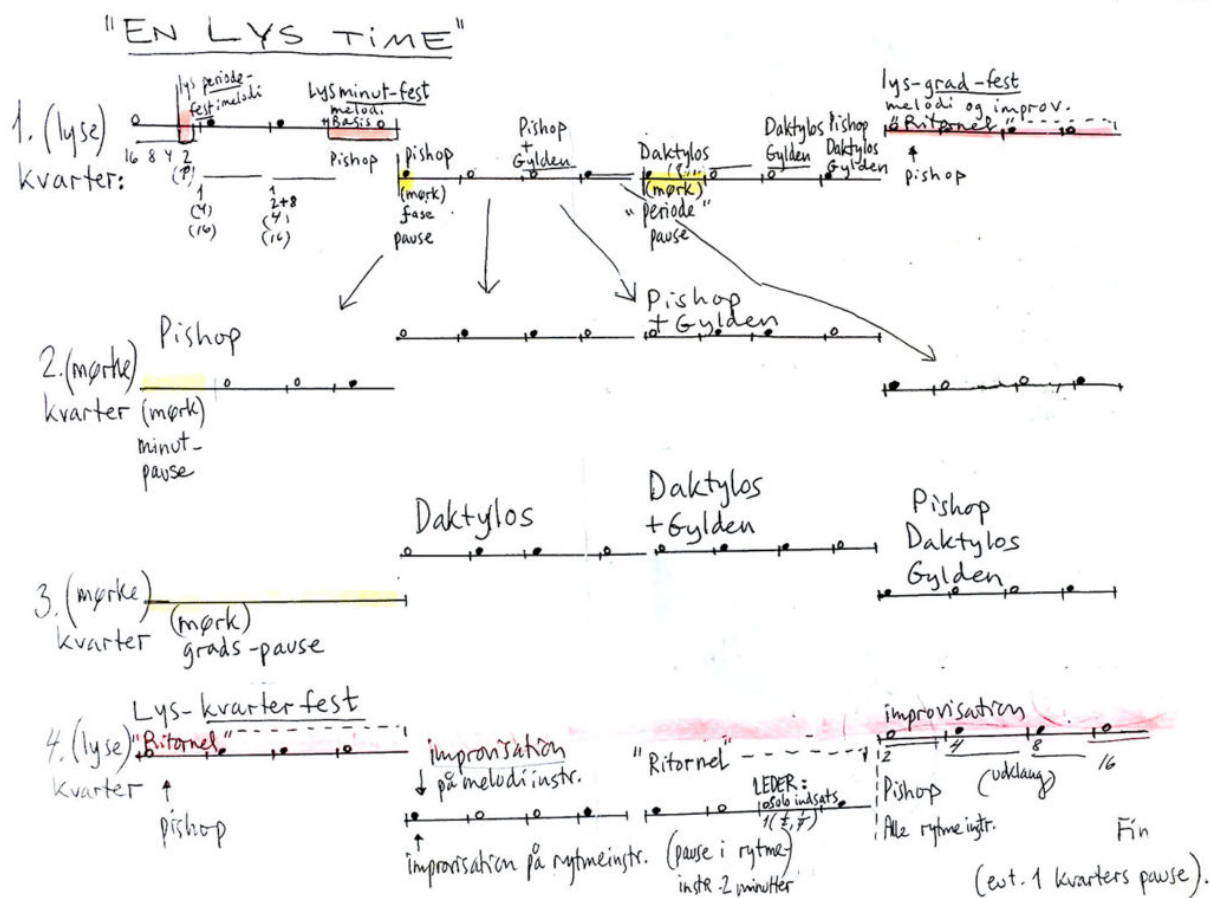 "EN LYS TIME"
1. (lyse)
kvarter:
lys periode-
fest: melodi
16 8 4 2
1
(4)
(16)
1
2+8
(4)
(16)
Lysminut-fest
melodi
+Basis
Pishop
pishop
(mørk)
fase
pause
Pishop
+
Gylden
Daktylos
(mørk)
"periode"
pause
Daktylos
Gylden
Pishop
Daktylos
Gylden
lys-grad-fest
melodi og improv.
"Ritornel"
pishop
2. (mørke)
kvarter
Pishop
(mørk)
minut-
pause
Pishop
+ Gylden
3. (mørke)
kvarter
(mørk)
grads-pause
Daktylos
Daktylos
+ Gylden
Pishop
Daktylos
Gylden
4. (lyse)
kvarter
Lys-kvarterfest
"Ritornel"
pishop
improvisation
på melodiinstr.
improvisation på rytmeinstr.
"Ritornel"
LEDER:
solo indsats
(pause i rytme-)
instr. 2 minutter
improvisation
2 4 8 16
(udklang)
Pishop
Alle rytmeinstr.
Fin
(evt. 1 kvarters pause).